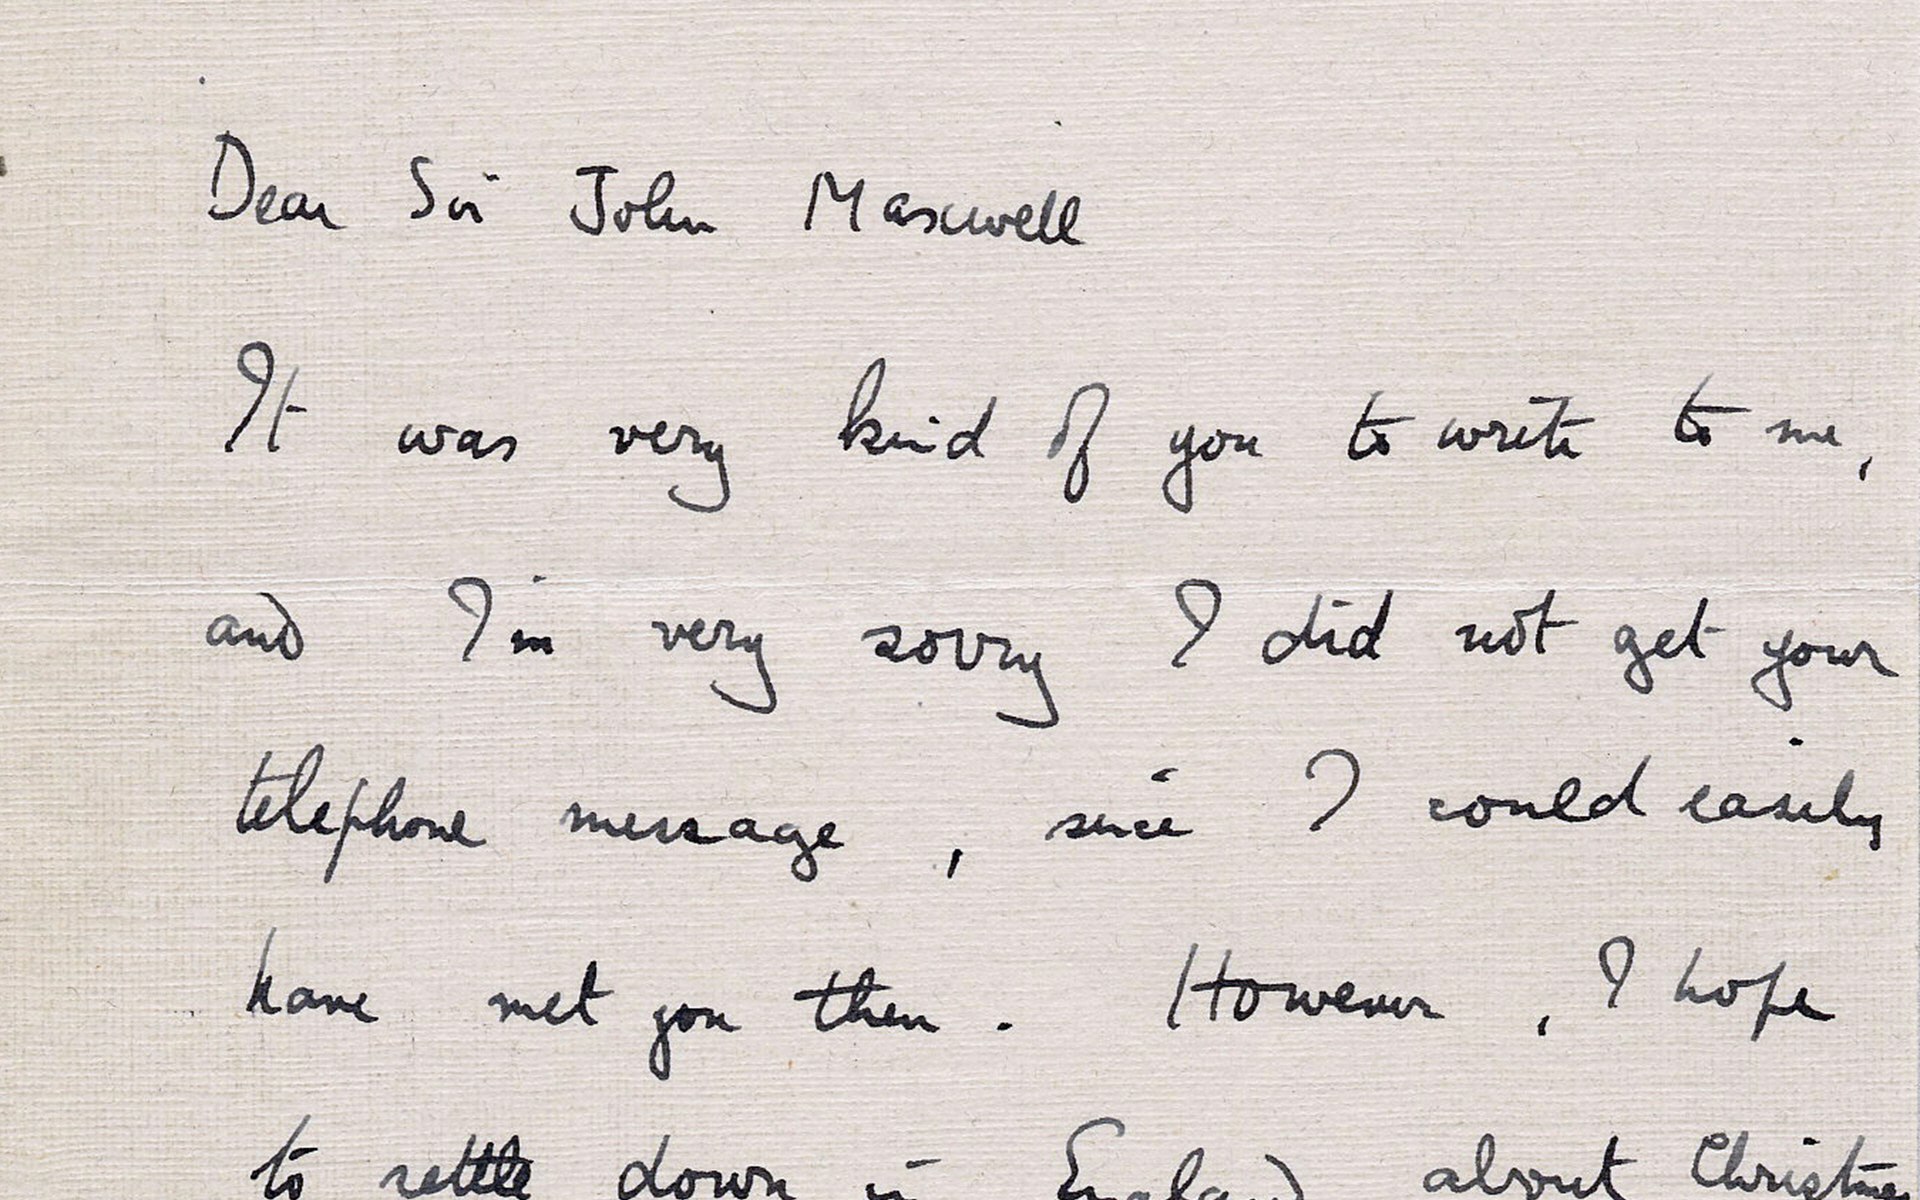 Dear Sir John Maxwell
It was very kind of you to write to me,
and I'm very sorry I did not get your
telephone message, since I could easily
have met you then. However, I hope
to settle down in England about Christmas